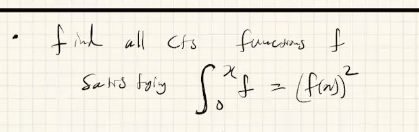 • find all cts functions f
satisfying ∫₀ˣ f = (f(x))²